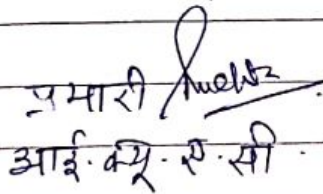 प्रभारी
आई. क्यू. ए. सी.